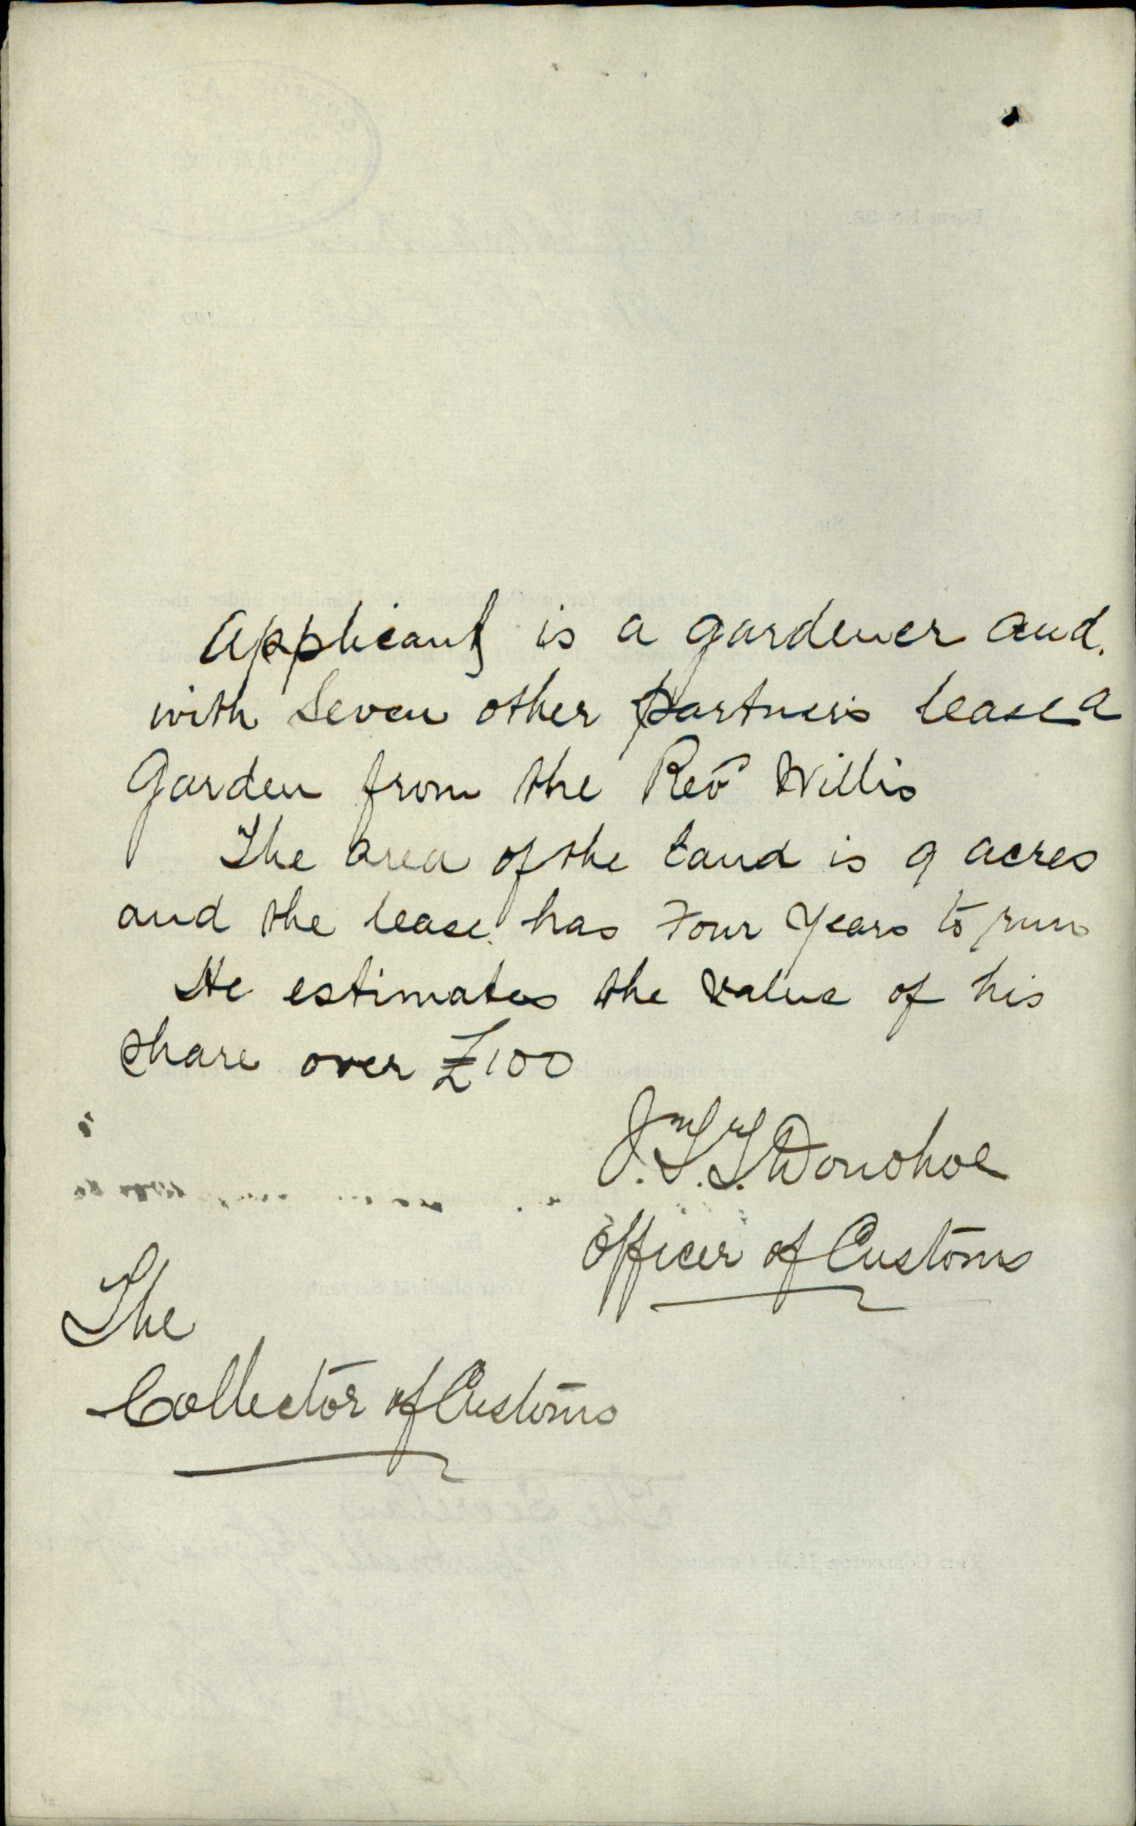 Applicant is a gardener and.
with seven other partners lease a
Garden from the Revd Willis
The area of the land is 9 acres
and the lease has Four Years to run
He estimates the value of his
share over £100
J. T. T. Donohoe
Officer of Customs
The
Collector of Customs